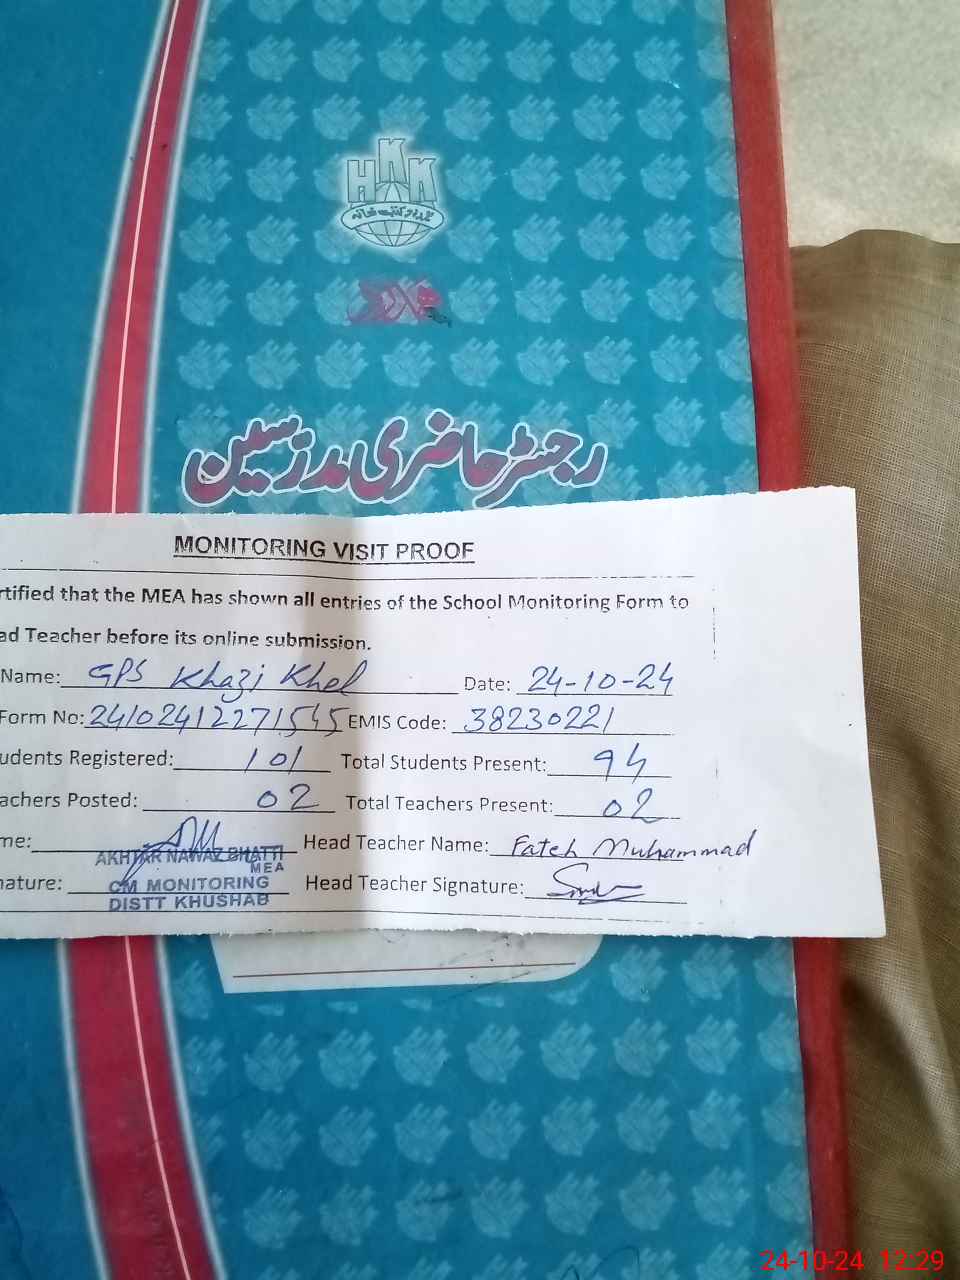 HKK
رجسٹر حاضری مدرسین
MONITORING VISIT PROOF
rtified that the MEA has shown all entries of the School Monitoring Form to
ad Teacher before its online submission.
Name: GPS Khazi Khel Date: 24-10-24
Form No: 24102412271545 EMIS Code: 38230221
udents Registered: 101 Total Students Present: 94
achers Posted: 02 Total Teachers Present: 02
me: AKHTAR NAWAZ BHATTI Head Teacher Name: Fateh Muhammad
MEA
nature: CM MONITORING Head Teacher Signature:
DISTT KHUSHAB
24-10-24 12:29